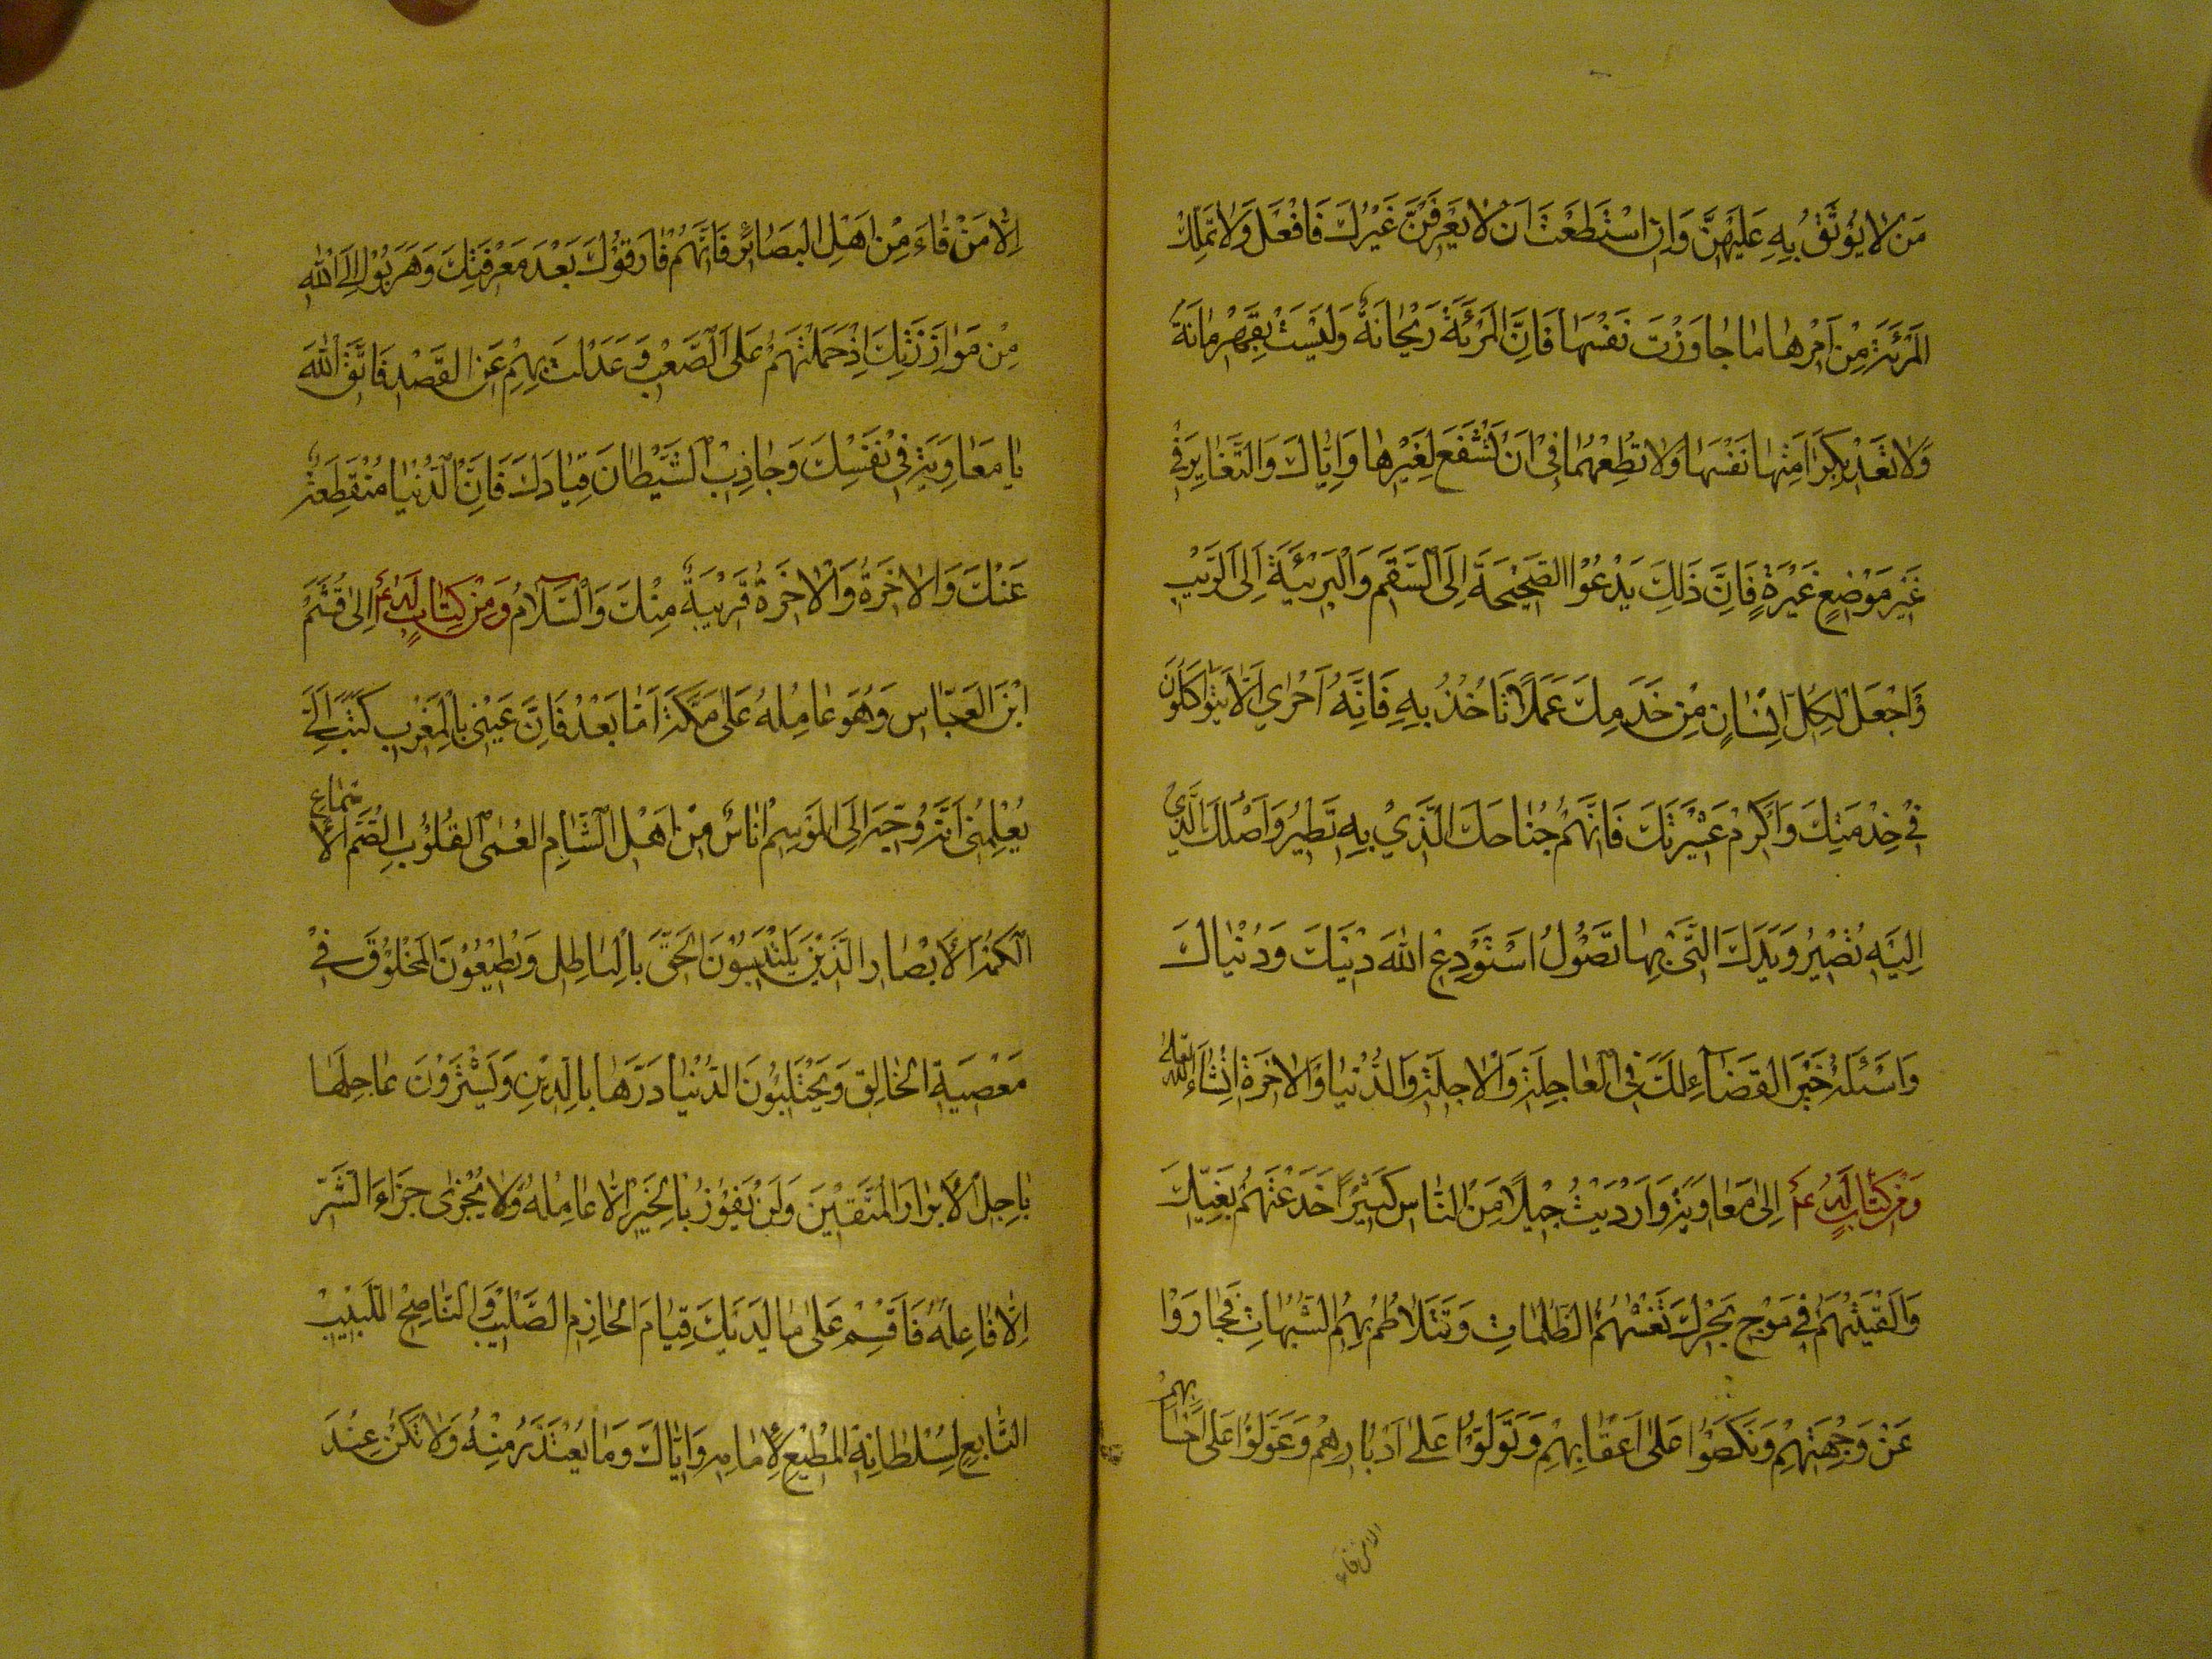 مَنْ لَا يُوثَقُ بِهِ عَلَيْهِنَّ وَاِنِ اسْتَطَعْتَ اَنْ لَا يَعْرِفْنَ غَيْرَكَ فَافْعَلْ وَلَا تُمَلِّكِ
الْمَرْئَةَ مِنْ اَمْرِهَا مَا جَاوَزَتْ نَفْسَهَا فَاِنَّ الْمَرْئَةَ رَيْحَانَةٌ وَلَيْسَتْ بِقَهْرِمَانَةٍ
وَلَا تَعْدُ بِكَرَامَتِهَا نَفْسَهَا وَلَا تُطْعِمْهَا فِي اَنْ تَشْفَعَ لِغَيْرِهَا وَاِيَّاكَ وَالتَّغَايُرَ فِي
غَيْرِ مَوْضِعِ غَيْرَةٍ فَاِنَّ ذَلِكَ يَدْعُوا الصَّحِيحَةَ اِلَى السَّقَمِ وَالْبَرِيْئَةَ اِلَى الرَّيْبِ
وَاجْعَلْ لِكُلِّ اِنْسَانٍ مِنْ خَدَمِكَ عَمَلًا تَاْخُذُ بِهِ فَاِنَّهُ اَحْرٰى اَلَّا يَتَوَاكَلُونَ
فِي خِدْمَتِكَ وَاَكْرِمْ عَشِيْرَتَكَ فَاِنَّهُمْ جَنَاحُكَ الَّذِيْ بِهِ تَطِيْرُ وَاَصْلُكَ الَّذِيْ
اِلَيْهِ تَصِيْرُ وَيَدُكَ الَّتِيْ بِهَا تَصُوْلُ اَسْتَوْدِعُ اللهَ دِيْنَكَ وَدُنْيَاكَ
وَاَسْئَلُهُ خَيْرَ الْقَضَاءِ لَكَ فِي الْعَاجِلَةِ وَالْاٰجِلَةِ وَالدُّنْيَا وَالْاٰخِرَةِ اِنْشَاءَ اللهُ تَعَالٰى
وَمِنْ كِتَابٍ لَهُ ع اِلَى مُعَاوِيَةَ وَاَرْدَيْتَ جِيْلًا مِنَ النَّاسِ كَثِيْرًا خَدَعْتَهُمْ بِغَيِّكَ
وَاَلْقَيْتَهُمْ فِي مَوْجِ بَحْرِكَ تَغْشَاهُمُ الظُّلُمَاتُ وَتَتَلَاطَمُ بِهِمُ الشُّبُهَاتُ فَجَارَوْا
عَنْ وِجْهَتِهِمْ وَنَكَصُوْا عَلٰى اَعْقَابِهِمْ وَتَوَلَّوْا عَلٰى اَدْبَارِهِمْ وَعَوَّلُوْا عَلٰى اَحْسَابِهِمْ
الا من فاء
اِلَّا مَنْ فَاءَ مِنْ اَهْلِ الْبَصَائِرِ فَاِنَّهُمْ فَارَقُوْكَ بَعْدَ مَعْرِفَتِكَ وَهَرَبُوْا اِلَى اللهِ
مِنْ مَوَازَرَتِكَ اِذْ حَمَلْتَهُمْ عَلَى الصَّعْبِ وَعَدَلْتَ بِهِمْ عَنِ الْقَصْدِ فَاتَّقِ اللهَ
يَا مُعَاوِيَةُ فِيْ نَفْسِكَ وَجَاذِبِ الشَّيْطَانَ قِيَادَكَ فَاِنَّ الدُّنْيَا مُنْقَطِعَةٌ
عَنْكَ وَالْاٰخِرَةُ وَالْاٰخِرَةُ قَرِيْبَةٌ مِنْكَ وَالسَّلَامُ وَمِنْ كِتَابٍ لَهُ ع اِلٰى قُثَمَ
ابْنِ الْعَبَّاسِ وَهُوَ عَامِلُهُ عَلٰى مَكَّةَ اَمَّا بَعْدُ فَاِنَّ عَيْنِيْ بِالْمَغْرِبِ كَتَبَ اِلَيَّ
يُعْلِمُنِيْ اَنَّهُ وُجِّهَ اِلَى الْمَوْسِمِ اُنَاسٌ مِنْ اَهْلِ الشَّامِ الْعُمْىِ الْقُلُوْبِ الصُّمِّ الْاَسْمَاعِ
الْكُمْهِ الْاَبْصَارِ الَّذِيْنَ يَلْتَبِسُوْنَ الْحَقَّ بِالْبَاطِلِ وَيُطِيْعُوْنَ الْمَخْلُوْقَ فِيْ
مَعْصِيَةِ الْخَالِقِ وَيَحْتَلِبُوْنَ الدُّنْيَا دَرَّهَا بِالدِّيْنِ وَيَشْتَرُوْنَ عَاجِلَهَا
بِاٰجِلِ الْاَبْرَارِ الْمُتَّقِيْنَ وَلَنْ يَفُوْزَ بِالْخَيْرِ اِلَّا عَامِلُهُ وَلَا يُجْزٰى جَزَاءَ الشَّرِّ
اِلَّا فَاعِلُهُ فَاَقِمْ عَلٰى مَا لَدَيْكَ قِيَامَ الْحَازِمِ الصَّلِيْبِ وَالنَّاصِحِ اللَّبِيْبِ
التَّابِعِ لِسُلْطَانِهِ الْمُطِيْعِ لِاِمَامِهِ وَاِيَّاكَ وَمَا يُعْتَذَرُ مِنْهُ وَلَا تَكُنْ عِنْدَ